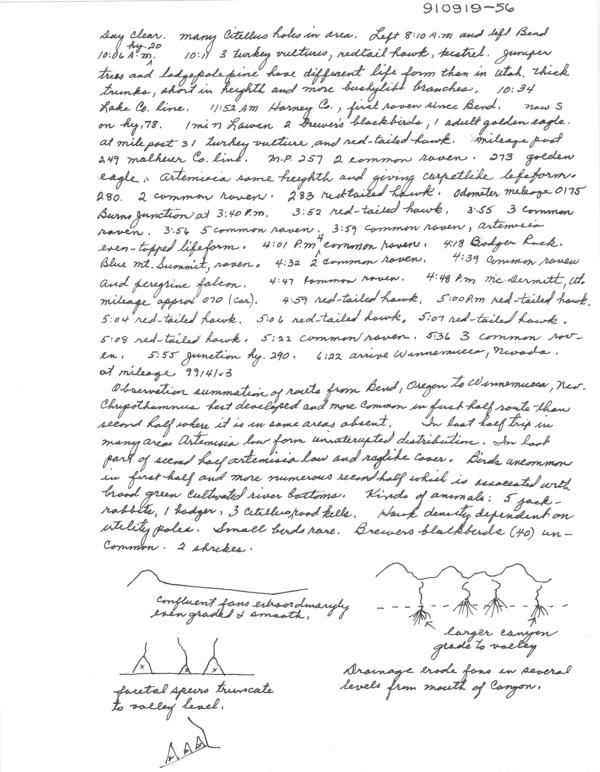 910919-56
Day clear. many Citellus holes in area. Left 8:10 A.M and left Bend
hy. 20
10:06 A.M. 10:11 3 turkey vultures, redtail hawk, kestrel. Juniper
trees and lodgepole pine have different life form than in Utah, thick
trunks, short in heighth and more bushylike branches. 10:34
Lake Co. line. 11:52 AM Harney Co., first raven since Bend. now S
on hy. 78. 1 mi N Lawen 2 Brewer's blackbirds, 1 adult golden eagle.
at mile post 31 turkey vulture, and red-tailed hawk. mileage post
249 malheur Co. line. M.P. 257 2 common raven. 273 golden
eagle. Artemisia same heighth and giving carpetlike lifeform.
280. 2 common raven. 283 redtailed hawk. Odometer mileage 0175
Burns Junction at 3:40 P.m. 3:52 red-tailed hawk. 3:55 3 common
raven. 3:56 5 common raven. 3:59 common raven, artemisia
even-topped lifeform. 4:01 P.m. 4 common raven. 4:18 Badger Rock.
Blue Mt. Summit, raven. 4:32 2 common raven. 4:39 common raven
and peregrine falcon. 4:47 common raven. 4:48 P.m Mc Dermitt,
mileage approx 070 (car). 4:59 red-tailed hawk. 5:00 P.m red-tailed hawk.
5:04 red-tailed hawk. 5:06 red-tailed hawk. 5:07 red-tailed hawk.
5:08 red-tailed hawk. 5:22 common raven. 5:36 3 common rav-
en. 5:55 Junction hy. 290. 6:22 arrive Winnemucca, Nevada.
at mileage 99141.3
Observation summation of route from Bend, Oregon to Winnemucca, Nev.
Chrysothamnus best developed and more common in first half route than
second half where it is in some areas absent. In last half trip in
many areas Artemisia low form uninterupted distribution. In last
part of second half artemisia low and raglike cover. Birds uncommon
in first half and more numerous second half which is associated with
broad green cultivated river bottoms. Kinds of animals: 5 jack-
rabbits, 1 badger, 3 Citellus, road kills. Hawk density dependent on
utility poles. Small birds rare. Brewers blackbirds (40) un-
common. 2 shrikes.
confluent fans extraordinaryly
even graded & smooth.
larger canyon
grade to valley
facetal spurs truncate
to valley level.
Drainage erode fans in several
levels from mouth of Canyon.